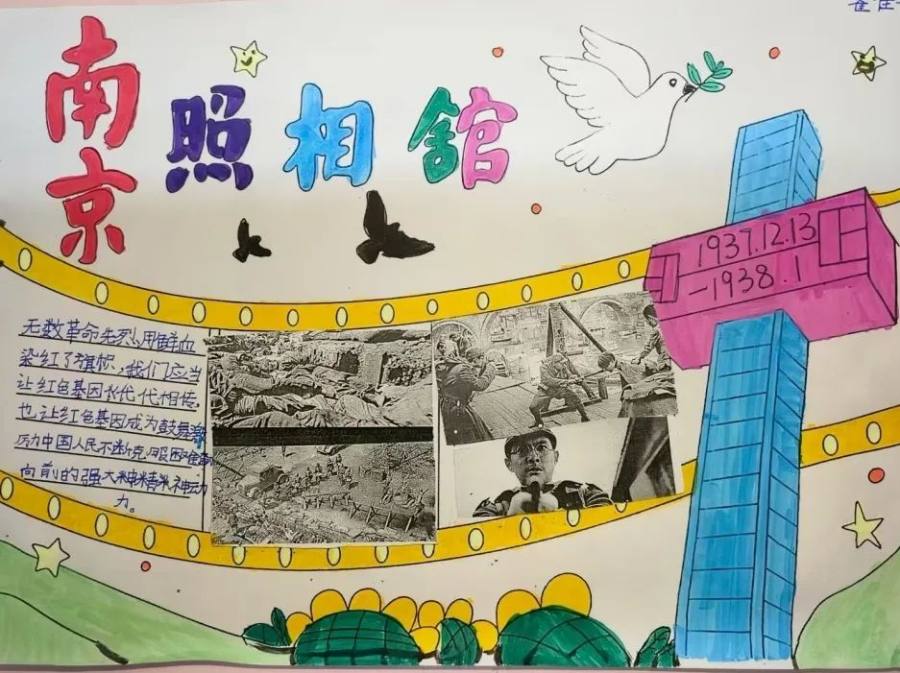 南京
照相馆
1937.12.13
-1938.1
无数革命先烈用鲜血
染红了旗帜,我们应当
让红色基因代代相传,
也让红色基因成为鼓舞激
励中国人民不断克服困难
向前的强大精神动
力。